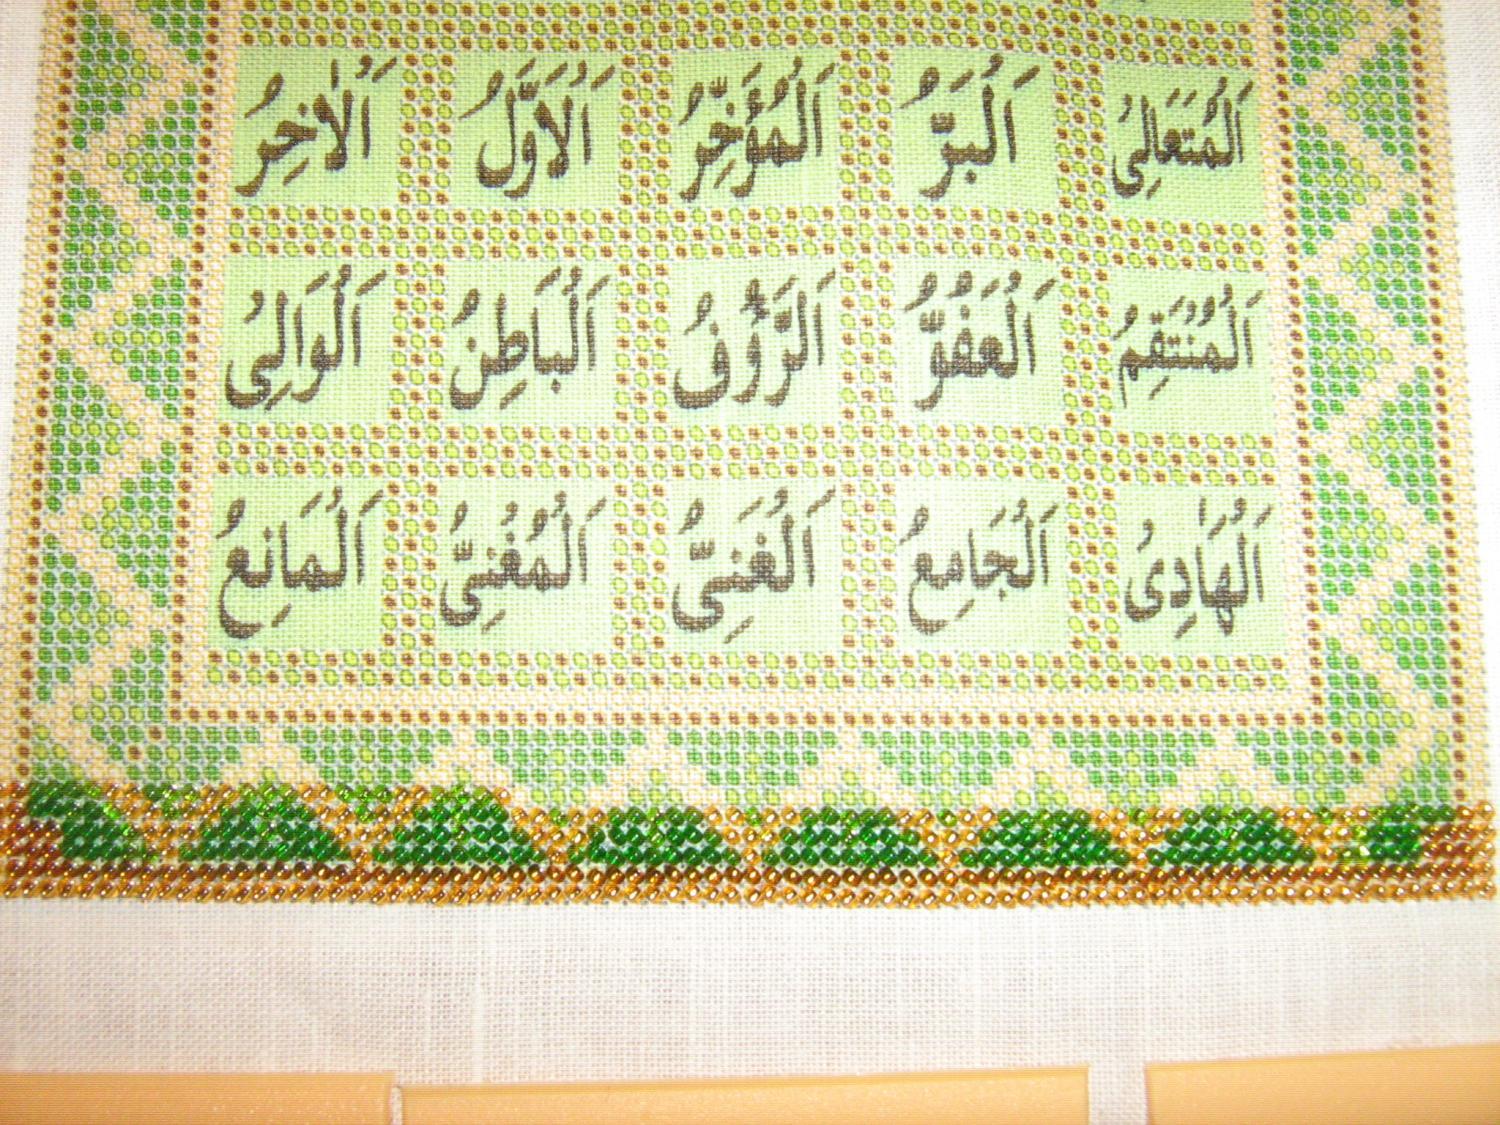 اَلْمُتَعَالِىُ اَلْبَرُّ اَلْمُؤَخِّرُ اَلْاَوَّلُ اَلْاٰخِرُ
اَلْمُنْتَقِمُ اَلْعَفُوُّ اَلرَّؤُفُ اَلْبَاطِنُ اَلْوَالِىُ
اَلْهَادِىُ اَلْجَامِعُ اَلْغَنِىُّ اَلْمُغْنِىُّ اَلْمَانِعُ